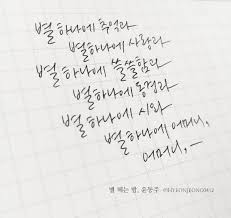 별 하나에 추억과
별 하나에 사랑과
별 하나에 쓸쓸함과
별 하나에 동경과
별 하나에 시와
별 하나에 어머니,
어머니, —
별 헤는 밤, 윤동주 @HYEONJEONG902